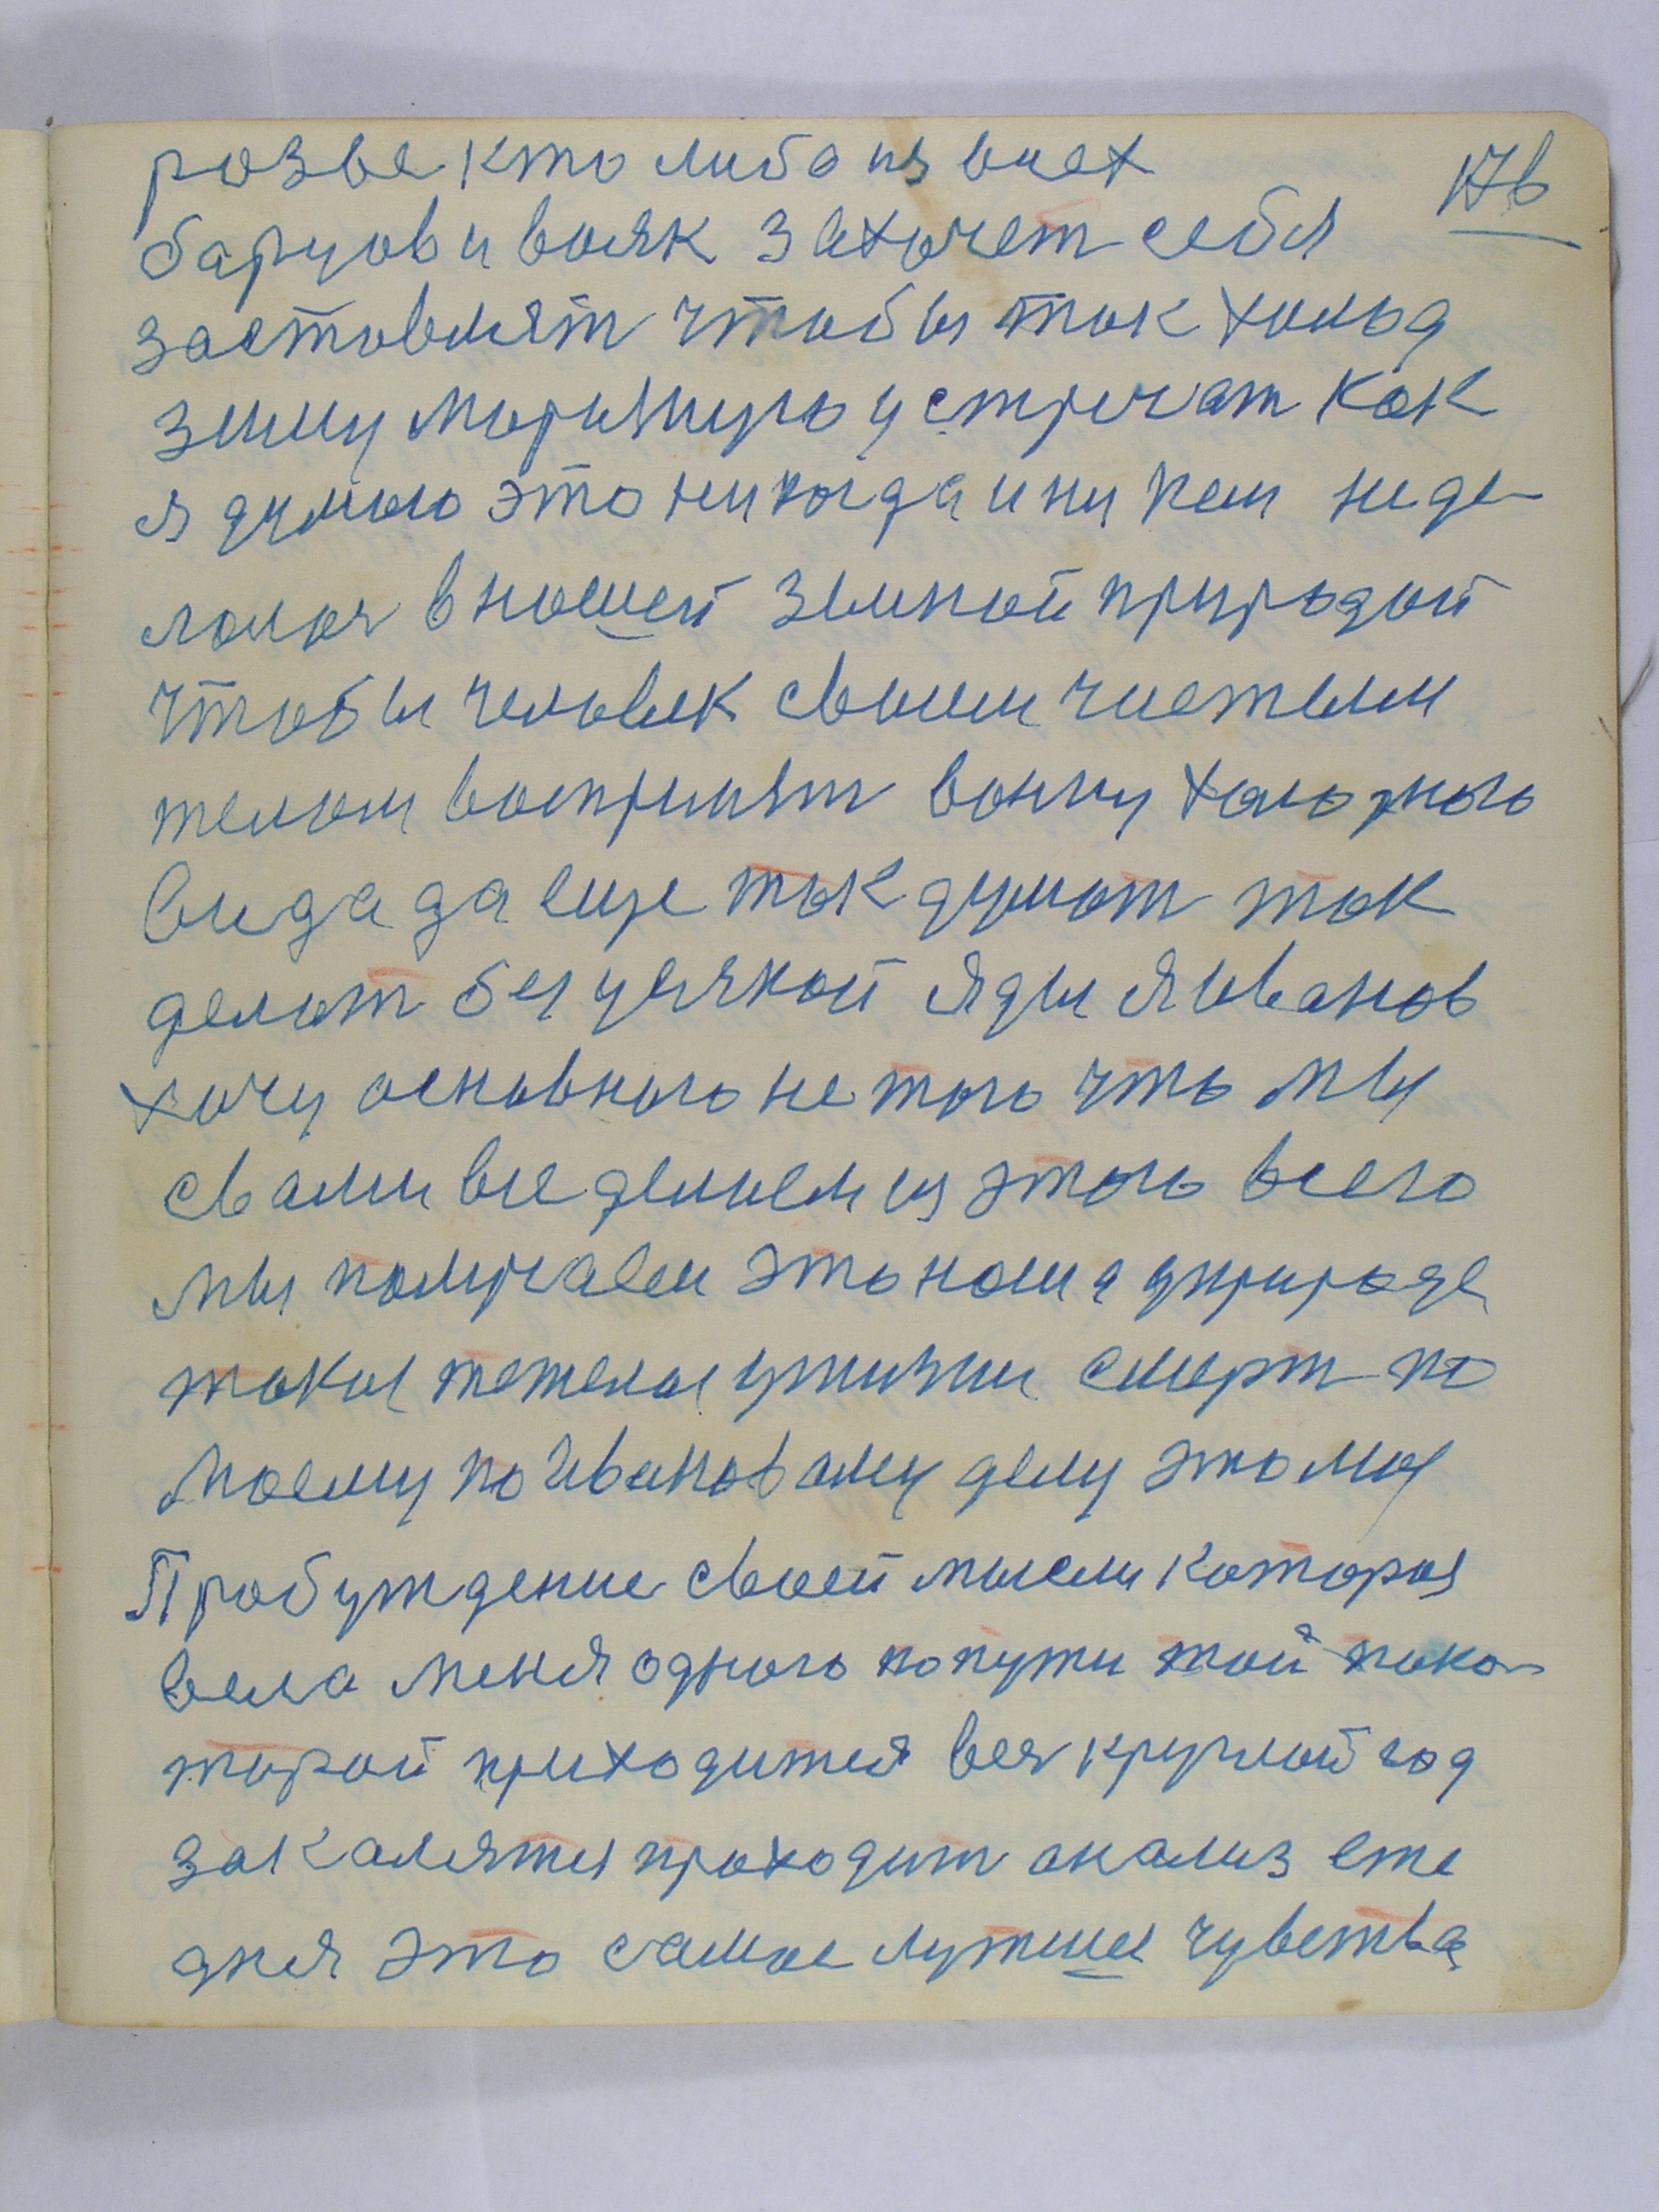 розве кто либо из всех
176
барцов и вояк захочет себя
застовлят чтобы ток холод
зиму морозную устречат как
я думою это никогда и ни кем не де-
лолоя в ношей земной природой
чтобы человек своим чистым
телом воспринят волну холодною
вида да еще ток думот ток
делот без усякой яды я Иванов
хочу основного не того что мы
с вами все делием из этого всего
мы получаем это ноша у природе
токая тежелая у жизни смерт по
моему по Ивановаму делу это моя
Пробуждение своей мысли которая
вела меня одного по пути той пако-
торой приходится вея круглой год
закалятся проходит анализ еже
дня это самое лутшие чувства